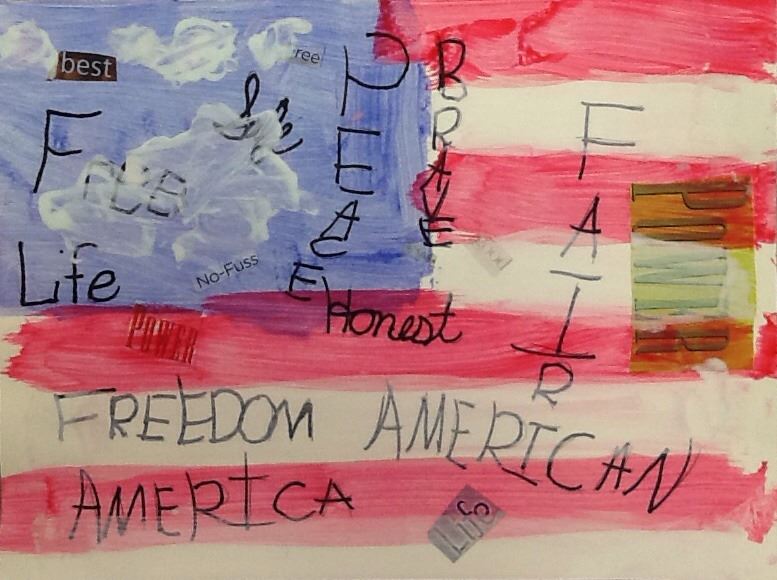 best
ree
Free
PEACE
BRAVE
FAIR
POWER
Life
No-Fuss
POWER
Honest
FREEDOM AMERICAN
AMERICA
Life